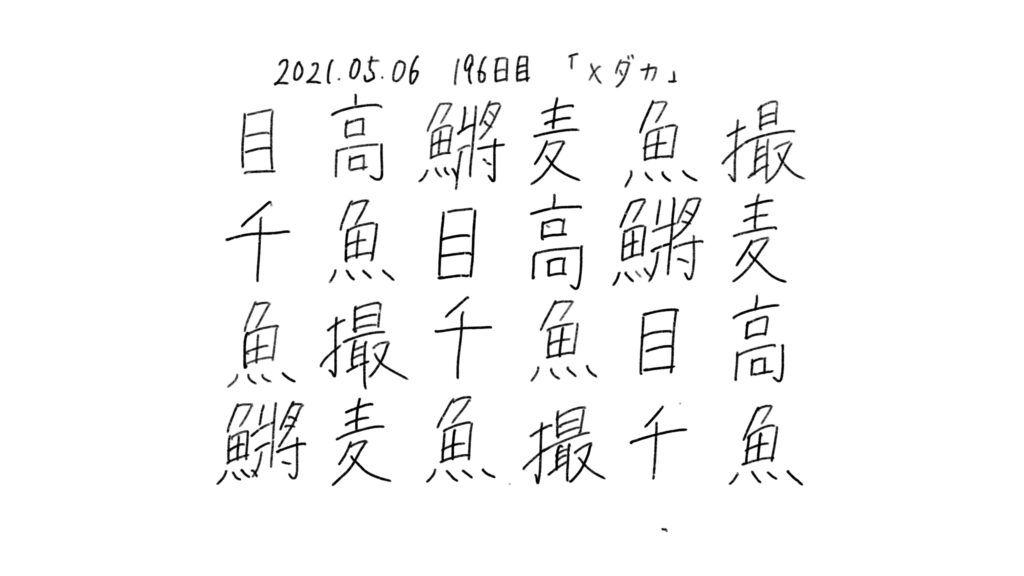 2021.05.06 196日目 「メダカ」
目高鱂麦魚撮
千魚目高鱂麦
魚撮千魚目高
鱂麦魚撮千魚